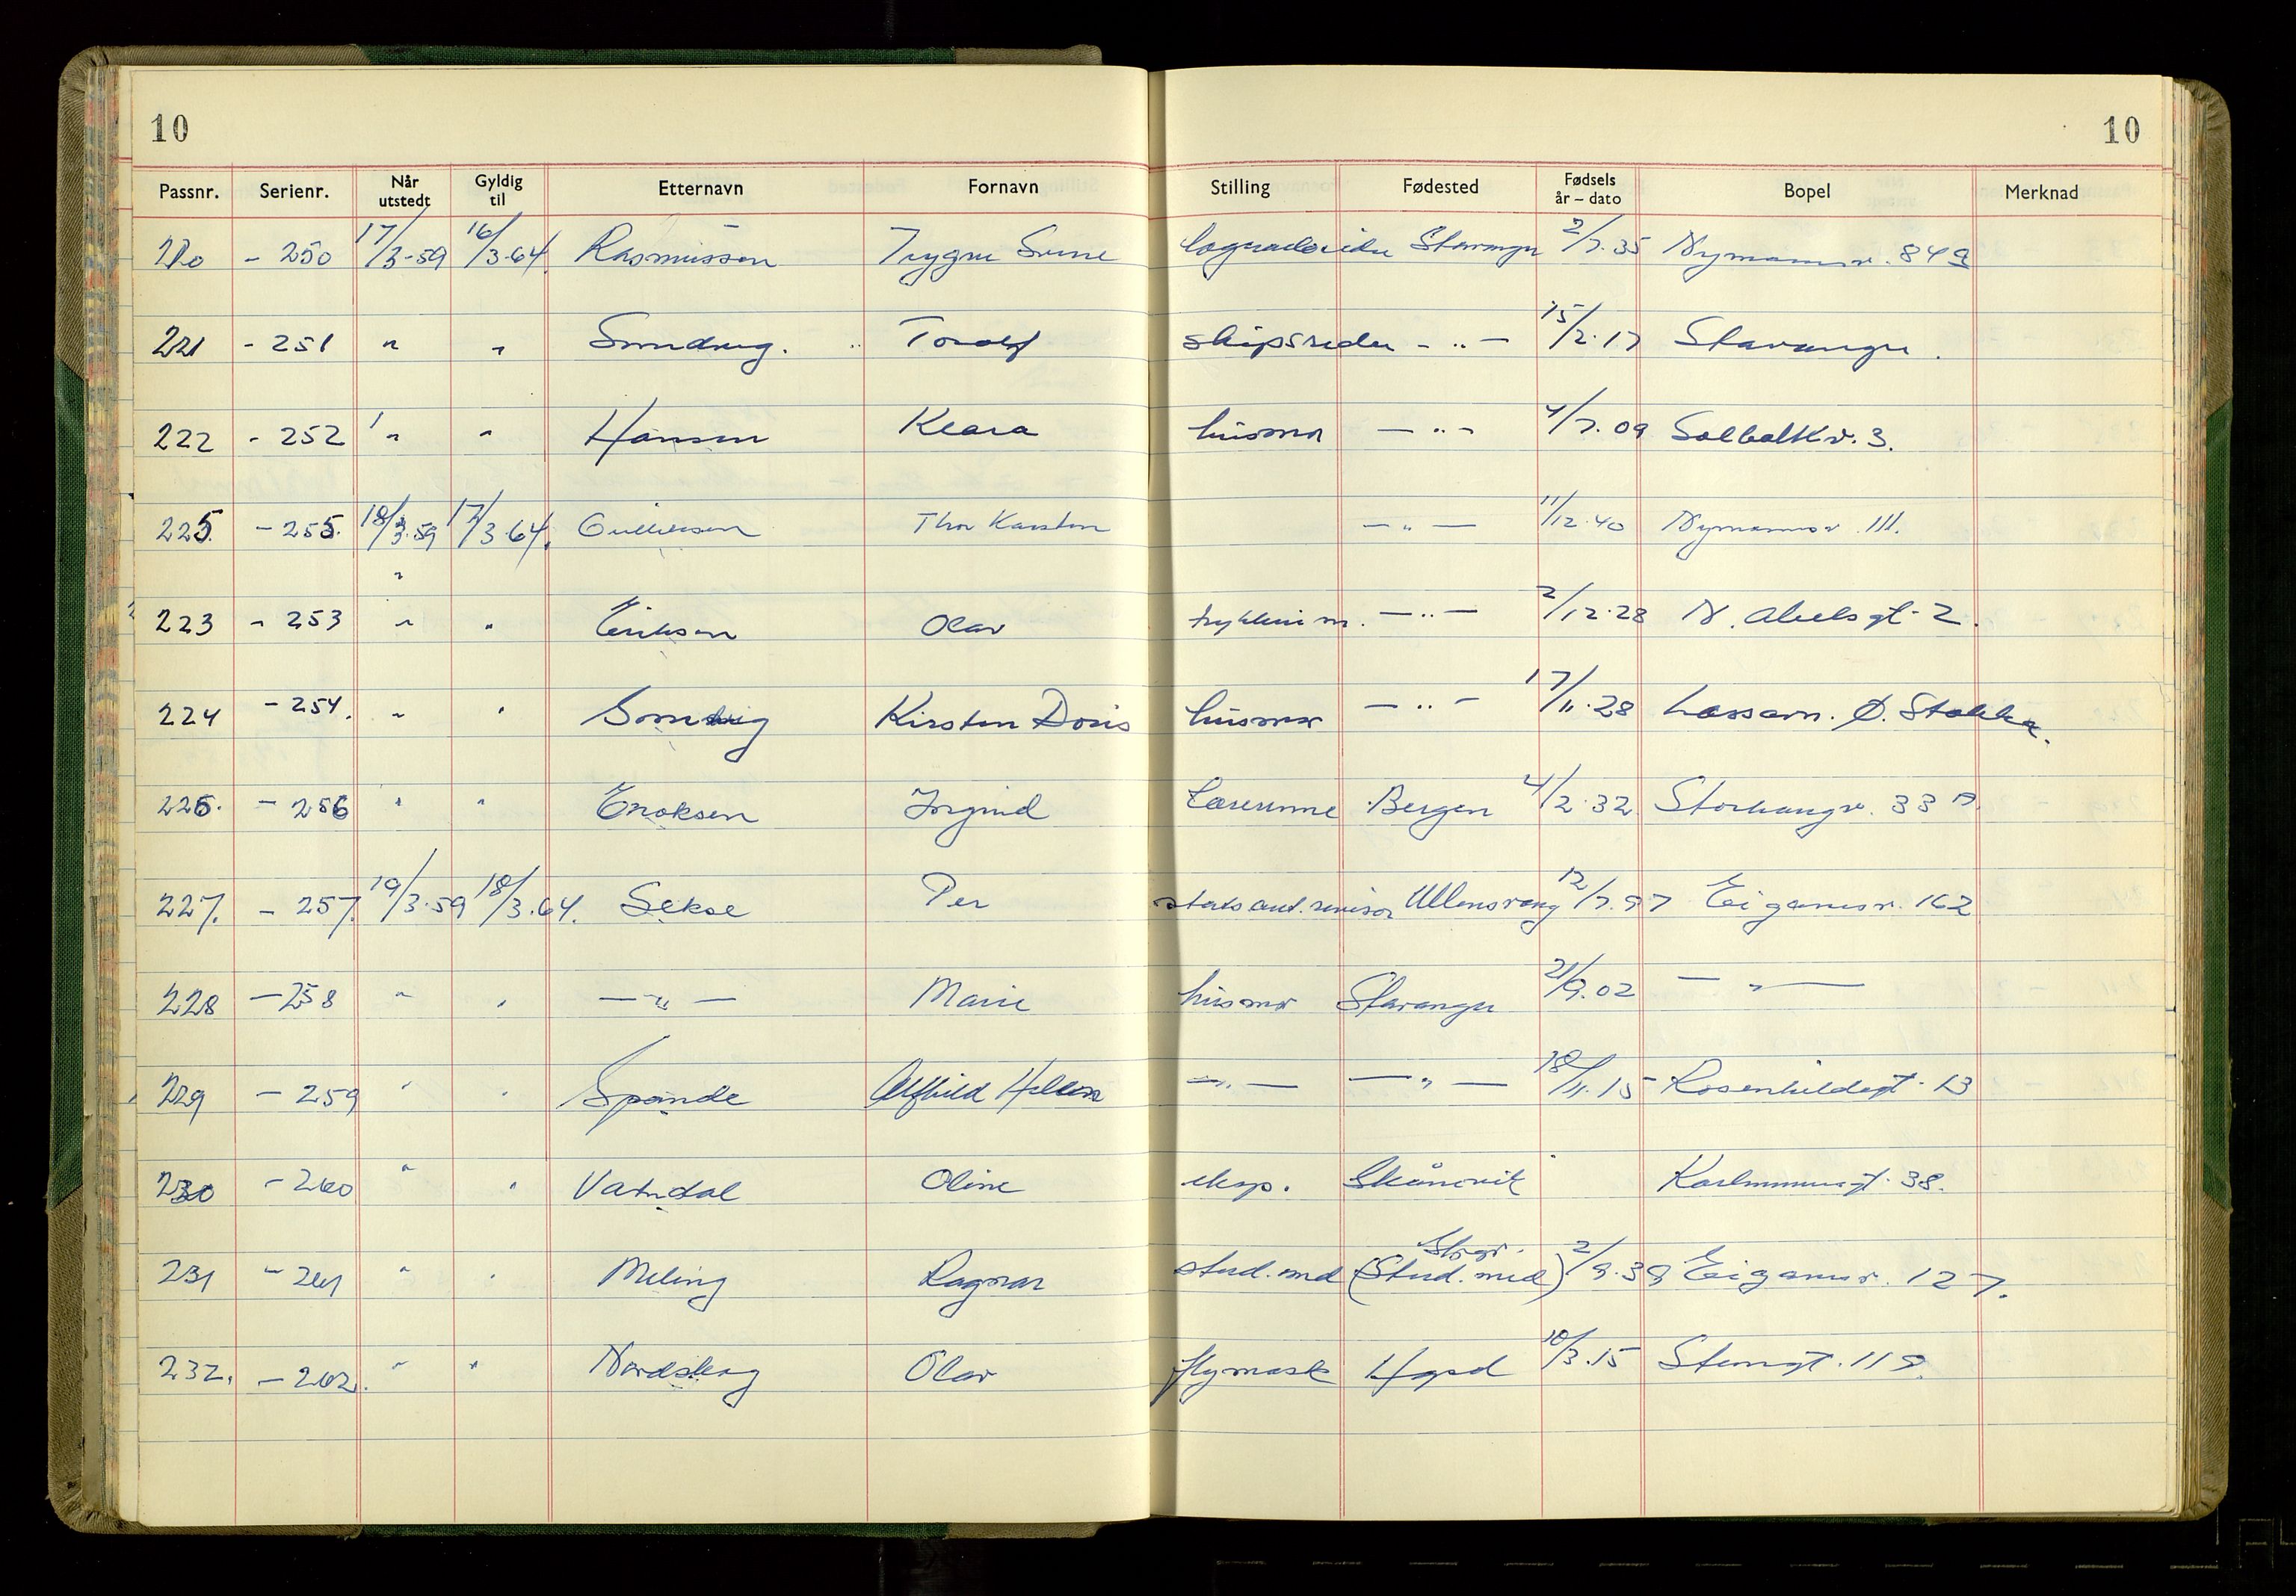 10 10
Passnr. Serienr. Når utstedt Gyldig til Etternavn Fornavn Stilling Fødested Fødsels år – dato Bopel Merknad
220 - 250 17/3-59 16/3-64. Rasmussen Trygve Sverre Stavanger 2/7.35 Nymannsv. 84a
221 - 251 " " Torolf skipsreder - " - 15/2.17 Stavanger.
222 - 252 " " Hansen Klara husmor - " - 4/7.09 Solbakkv. 3.
225. - 255. 18/3.59 17/3.64. Gulliksen Thor Karsten - " - 11/12.40 Nymannsv. 111.
"
223 - 253 " " Eriksen Olav trykkerim. - " - 2/12.28 N. Abelsgt. 2.
224 - 254. " " Kirsten Doris husmor - " - 17/11.28 Lassarn. Ø. Stokka.
226. - 256 " " Enoksen Jorgind Lærerinne Bergen 4/2.32 Storhaugv. 33 A.
227. - 257. 19/3.59 18/3.64. Sekse Per stats aut. revisor Ullensvang 12/7.97 Eiganesv. 162
228 - 258 " " - " - Marie husmor Stavanger 21/9.02 - " -
229 - 259 " " Spande Alfhild Helene - " - - " - 18/11.15 Rosenkildegt. 13
230 - 260 " " Vatndal Oline eksp. Skånevik Karlsminnegt. 38.
231 - 261 " " Meling Ragnar stud. med Stvgr. (Stud. med) 2/9.39 Eiganesv. 127.
232. - 262. " " Nordskog Olav flymask Hgsd 10/3.15 Steingt. 118.